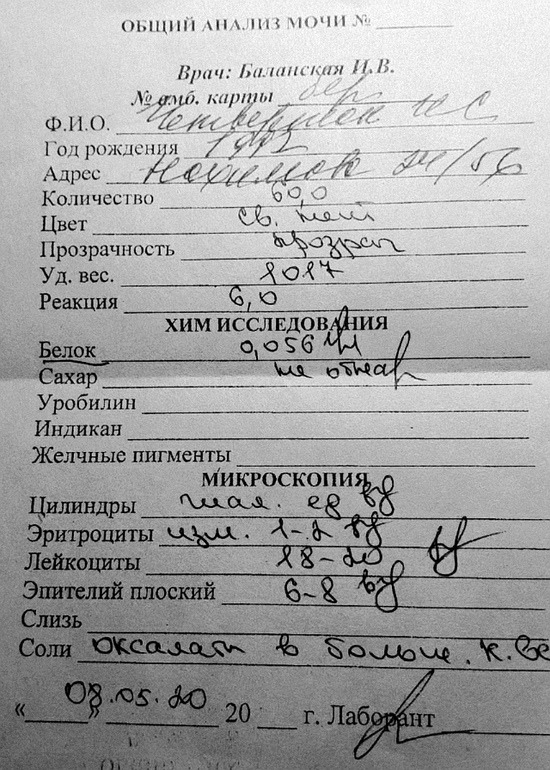 ОБЩИЙ АНАЛИЗ МОЧИ №
Врач: Баланская И.В.
№ амб. карты бер
Ф.И.О. И С
Год рождения
Адрес 24/56
Количество 60,0
Цвет св. жел
Прозрачность прозрач
Уд. вес. 1017
Реакция 6,0
ХИМ ИССЛЕДОВАНИЯ
Белок 0,056 г/л
Сахар не обнар
Уробилин
Индикан
Желчные пигменты
МИКРОСКОПИЯ
Цилиндры гиал. ед в/
Эритроциты изм. 1-2 в/
Лейкоциты 18-20
Эпителий плоский 6-8 в/
Слизь
Соли оксалаты в больш. к.ве
« » 07.05.20 20 г. Лаборант